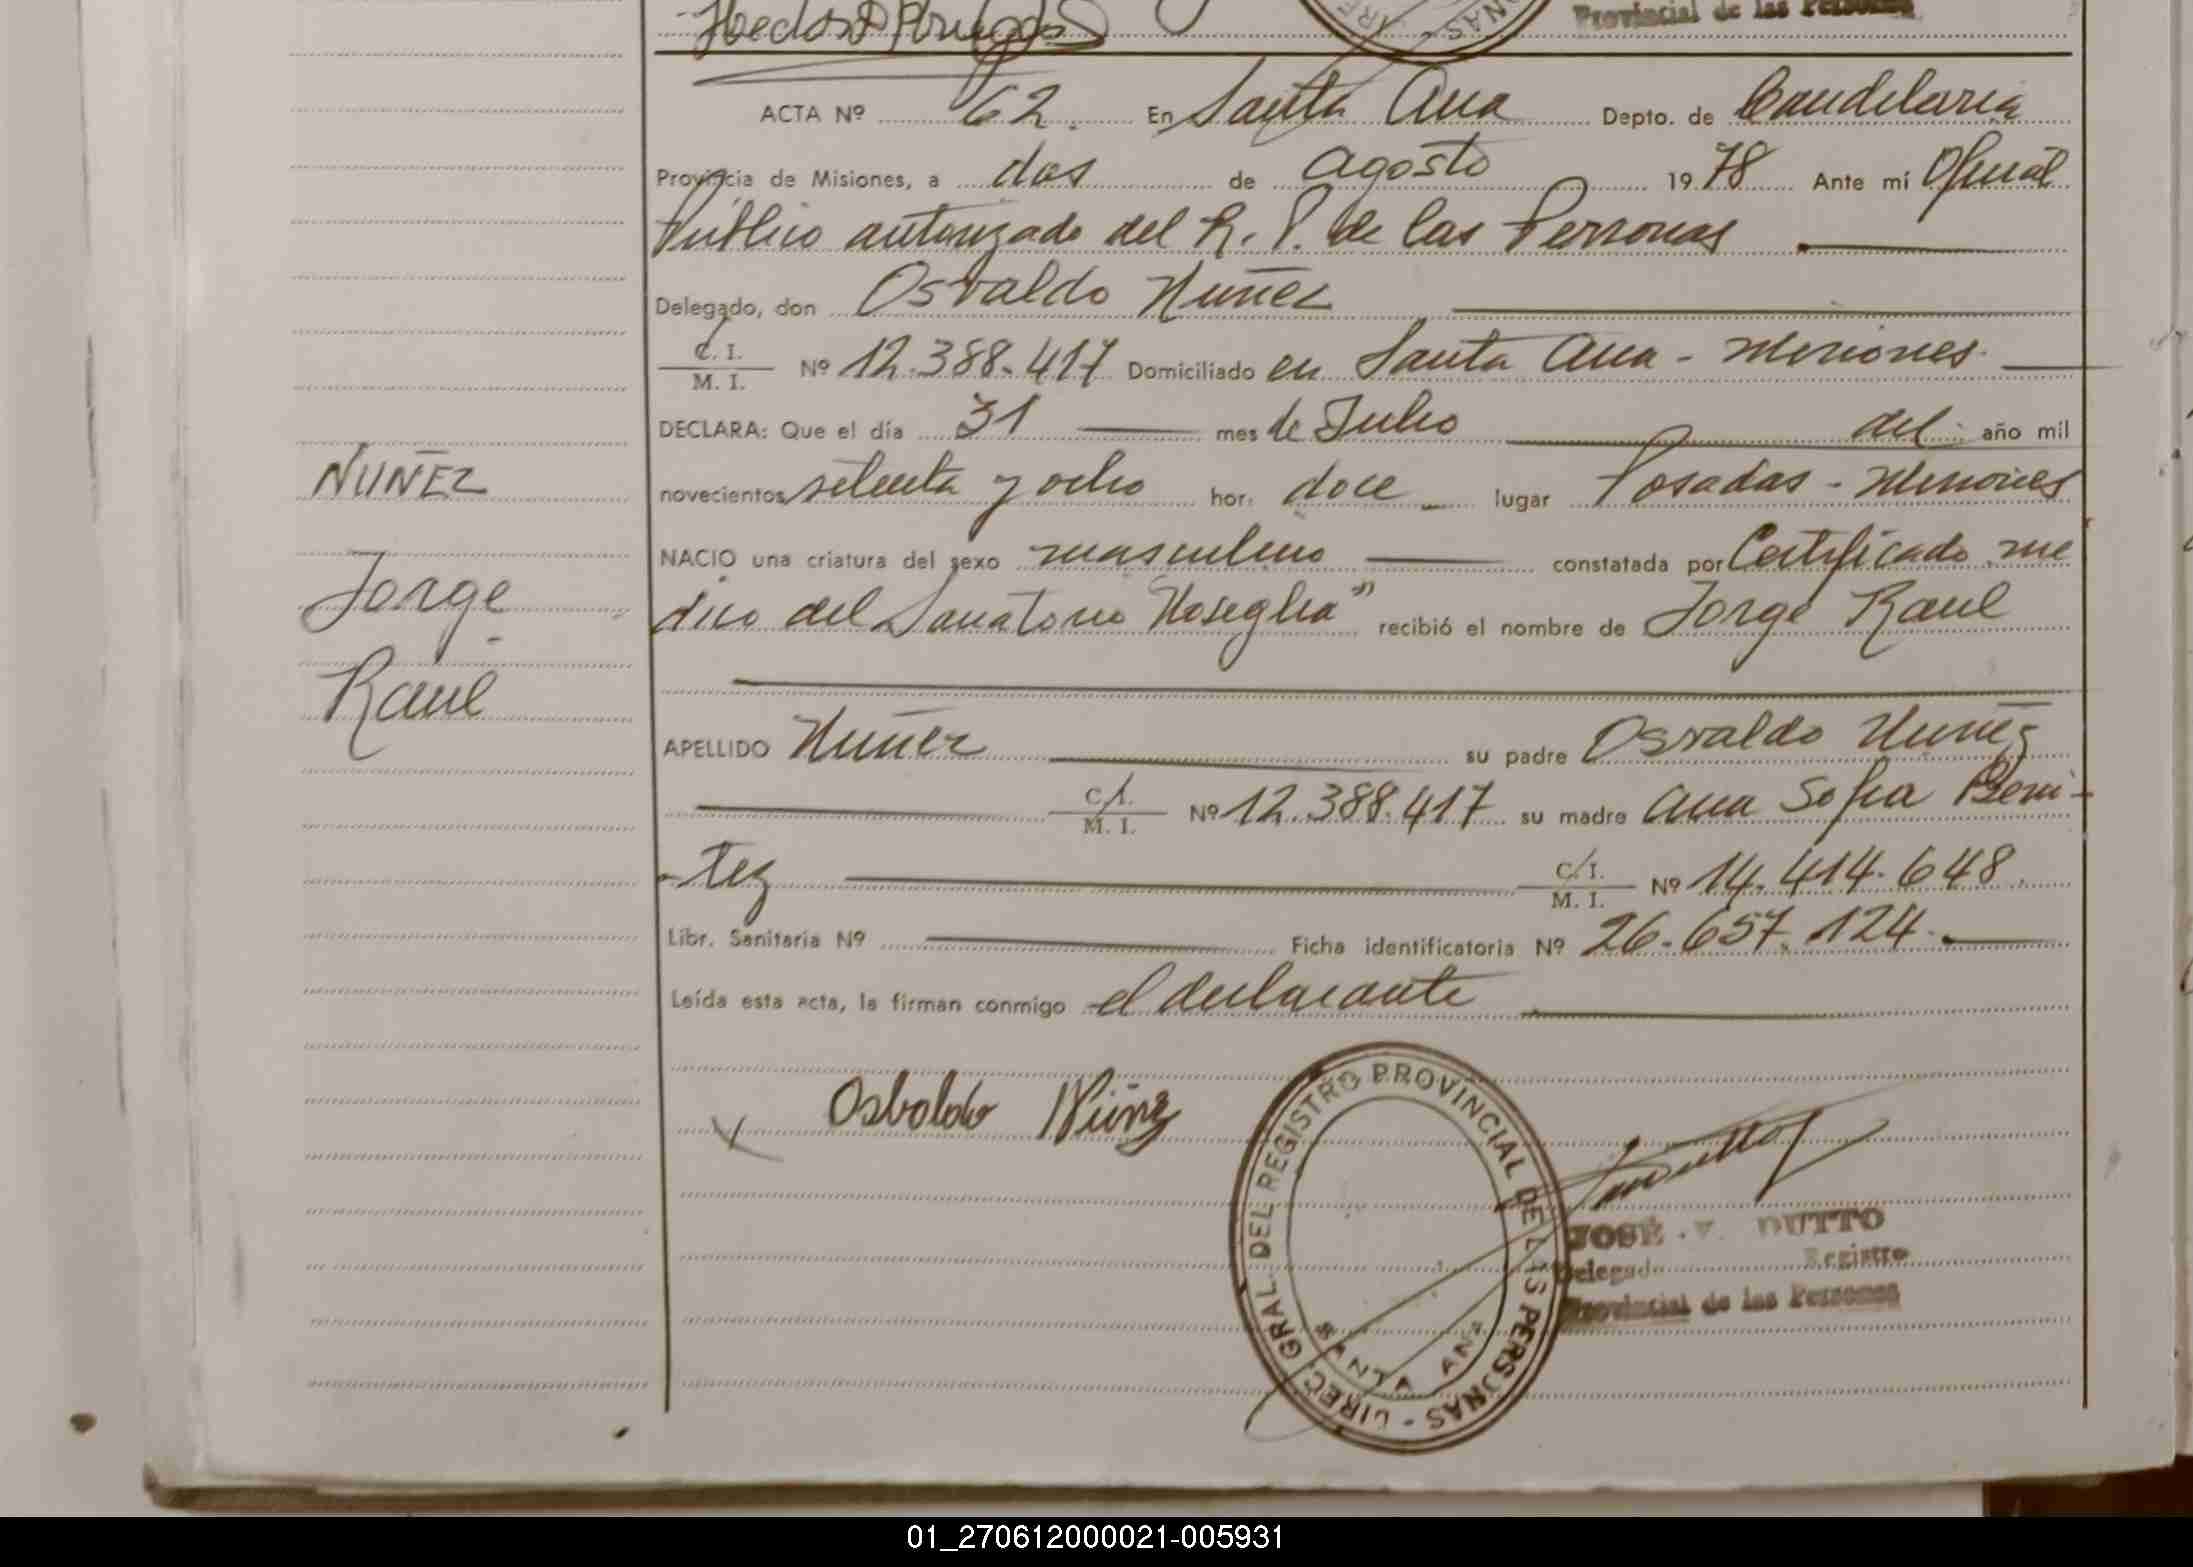 Provincial de las Personas
ACTA Nº 62. En Santa Ana Depto. de Candelaria
Provincia de Misiones, a dos de agosto 1978 Ante mí Oficial
Público autorizado del R. P. de las Personas
Delegado, don Osvaldo Nuñez
C. I.
M. I. Nº 12.388.417 Domiciliado en Santa Ana - Misiones
DECLARA: Que el día 31 mes de Julio del año mil
novecientos setenta y ocho hor. doce lugar Posadas - Misiones
NUÑEZ
NACIO una criatura del sexo masculino constatada por Certificado me
Jorge
dico del Sanatorio "Noseglia" recibió el nombre de Jorge Raul
Raul
APELLIDO Nuñez su padre Osvaldo Nuñez
C. I.
M. I. Nº 12.388.417 su madre Ana Sofia Beni-
-tez C. I.
M. I. Nº 14.414.648.
Libr. Sanitaria Nº Ficha identificatoria Nº 26.657.124.
Leída esta acta, la firman conmigo el declarante
Osbaldo Núñez
DIREC. GRAL. DEL REGISTRO PROVINCIAL DE LAS PERSONAS -
SANTA ANA
JOSÉ V. DUTTO
Delegado Registro
Provincial de las Personas
01_270612000021-005931